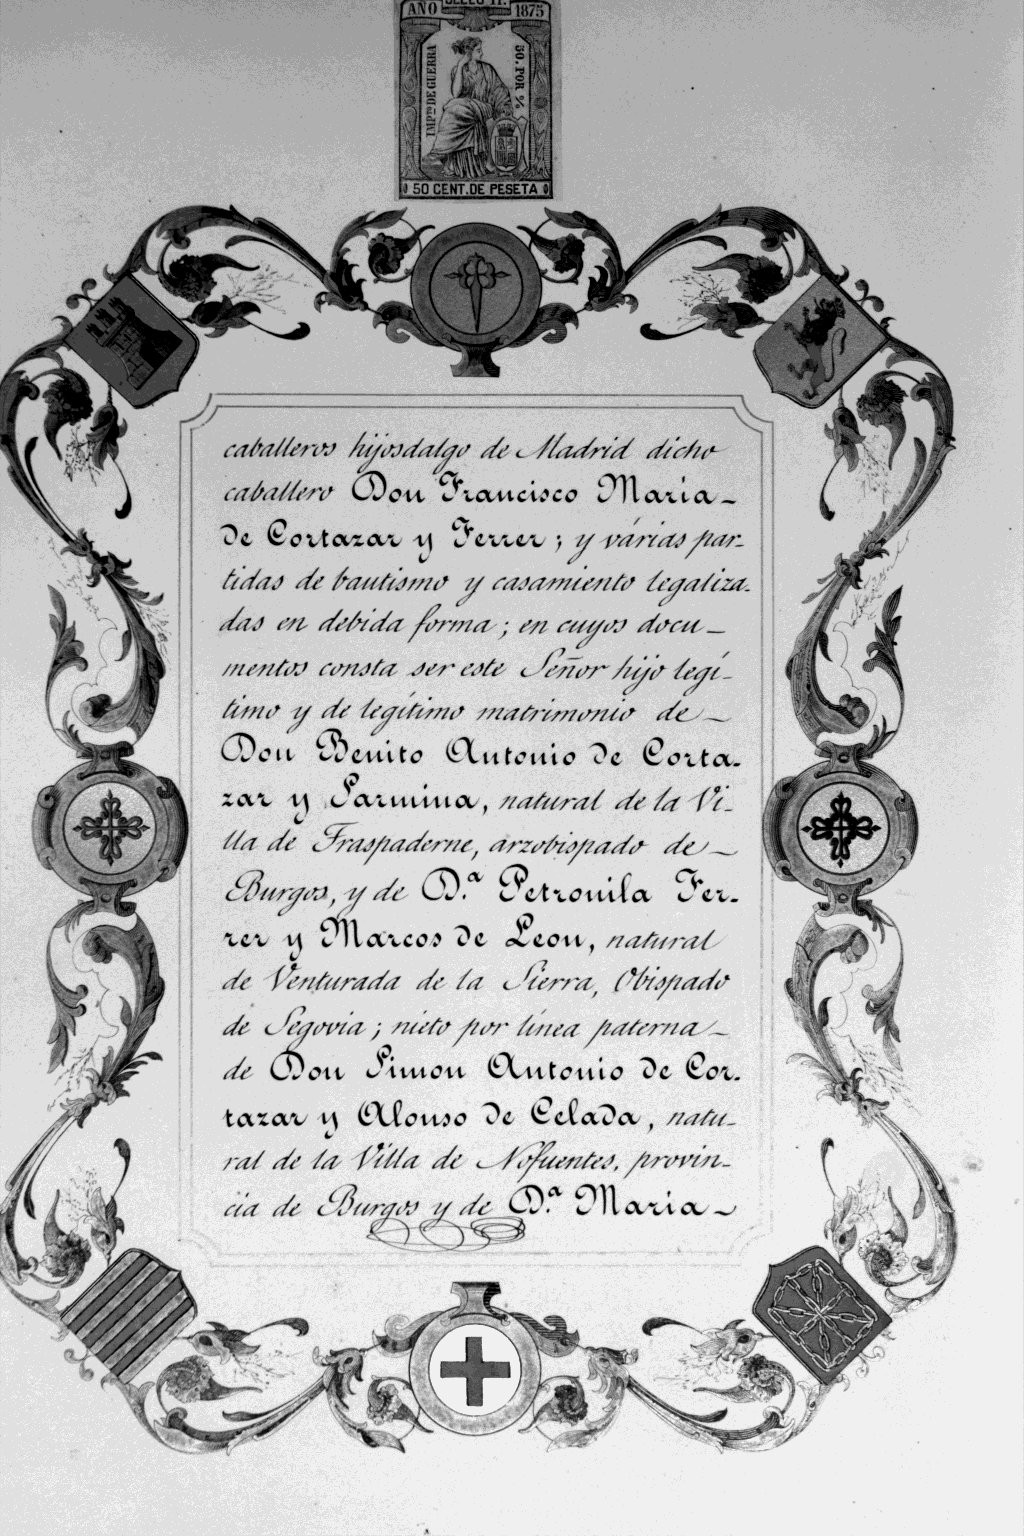 AÑO SELLO 11º 1875
IMPTO DE GUERRA
50. POR %
50 CENT. DE PESETA
caballeros hijosdalgo de Madrid dicho
caballero Don Francisco Maria-
de Cortazar y Ferrer; y várias par-
tidas de bautismo y casamiento legaliza-
das en debida forma; en cuyos docu-
mentos consta ser este Señor hijo legí-
timo y de legítimo matrimonio de-
Don Benito Antonio de Corta-
zar y Sarmina, natural de la Vi-
lla de Fraspaderne, arzobispado de-
Burgos, y de D.ª Petronila Fer-
rer y Marcos de Leon, natural
de Venturada de la Sierra, Obispado
de Segovia; nieto por línea paterna-
de Don Simon Antonio de Cor-
tazar y Alonso de Celada, natu-
ral de la Villa de Nofuentes, provin-
cia de Burgos y de D.ª Maria-